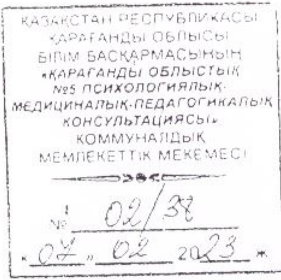 ҚАЗАҚСТАН РЕСПУБЛИКАСЫ
ҚАРАҒАНДЫ ОБЛЫСЫ
БІЛІМ БАСҚАРМАСЫНЫҢ
«ҚАРАҒАНДЫ ОБЛЫСТЫҚ
№5 ПСИХОЛОГИЯЛЫҚ-
МЕДИЦИНАЛЫҚ-ПЕДАГОГИКАЛЫҚ
КОНСУЛЬТАЦИЯСЫ»
КОММУНАЛДЫҚ
МЕМЛЕКЕТТІК МЕКЕМЕСІ
№ 02/38
«07» 02 2023 ж